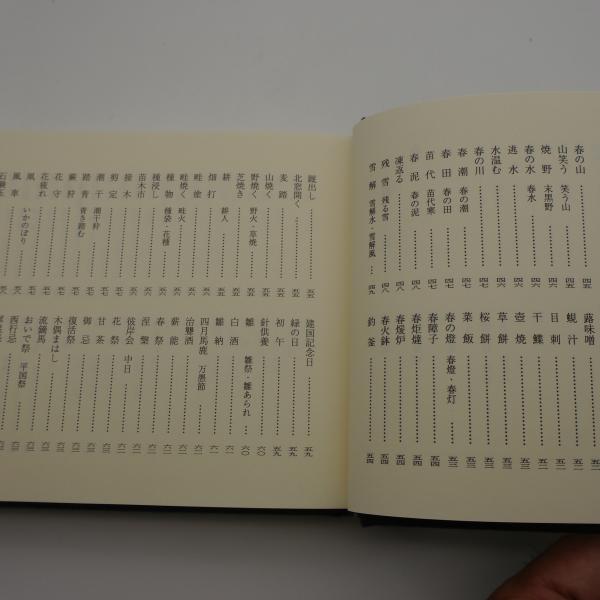 春の山 四五
山笑う 笑う山 四五
焼野 末黒野 四六
春の水 春水 四六
逃水 四六
水温む 四六
春の川 四七
春潮 春の潮 四七
春田 春の田 四七
苗代 苗代寒 四七
春泥 春の泥 四八
凍返る 四八
残雪 残る雪 四八
雪解 雪解水・雪解風 四九
蕗味噌
蜆汁 五二
目刺 五二
干鰈 五二
壺焼 五二
草餅 五三
桜餅 五三
菜飯 五三
春の燈 春燈・春灯 五三
春障子 五四
春炬燵 五四
春煖炉 五四
春火鉢 五四
釣釜 五四
厩出し 五五
北窓開く 五五
麦踏 五五
山焼く 五五
野焼く 野火・草焼 五五
芝焼き 五五
耕 耕人 五五
畑打 五六
畦塗 五六
畦焼く 畦火 五六
種物 種袋・花種 五六
種浸し 五六
苗木市 五六
接木 五六
剪定 五七
潮干 潮干狩 五七
踏青 青き踏む 五七
蕨狩 五七
花守 五七
花疲れ 五七
凧 いかのぼり 五七
風車 五八
石鹸玉 五八
建国記念日 五九
緑の日 五九
初午 五九
針供養 六〇
雛 雛祭・雛あられ 六〇
白酒
雛納
四月馬鹿 万愚節
治聾酒
薪能
春祭
涅槃
彼岸会 中日
花祭
甘茶
御忌
復活祭
木偶まはし
流鏑馬
おいで祭 平国祭
西行忌